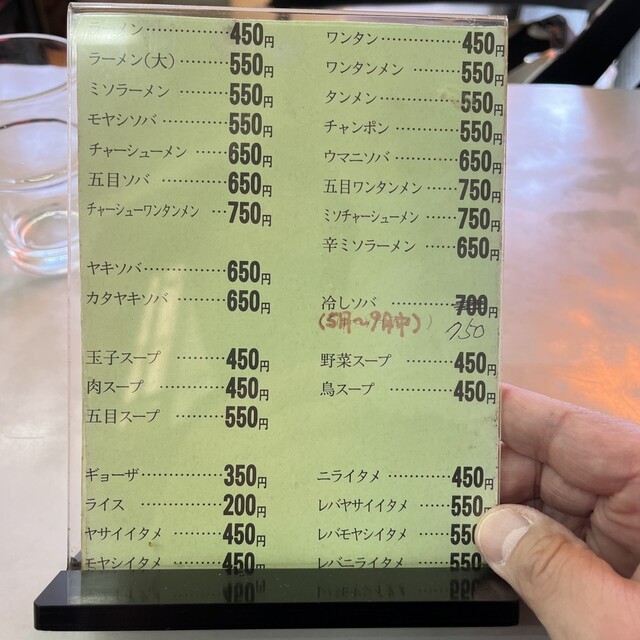 ラーメン ………450円
ラーメン(大) ………550円
ミソラーメン ………550円
モヤシソバ …………550円
チャーシューメン ………650円
五目ソバ …………650円
チャーシューワンタンメン …750円
ヤキソバ …………650円
カタヤキソバ ………650円
玉子スープ ………450円
肉スープ …………450円
五目スープ ………550円
ギョーザ …………350円
ライス …………200円
ヤサイイタメ ………450円
モヤシイタメ ………450円
ワンタン …………450円
ワンタンメン ………550円
タンメン …………550円
チャンポン …………550円
ウマニソバ …………650円
五目ワンタンメン ……750円
ミソチャーシューメン ……750円
辛ミソラーメン ………650円
冷しソバ ………700円
(5月〜9月中) 750
野菜スープ ………450円
鳥スープ …………450円
ニライタメ …………450円
レバヤサイイタメ ……550
レバモヤシイタメ ……550
レバニライタメ ………550